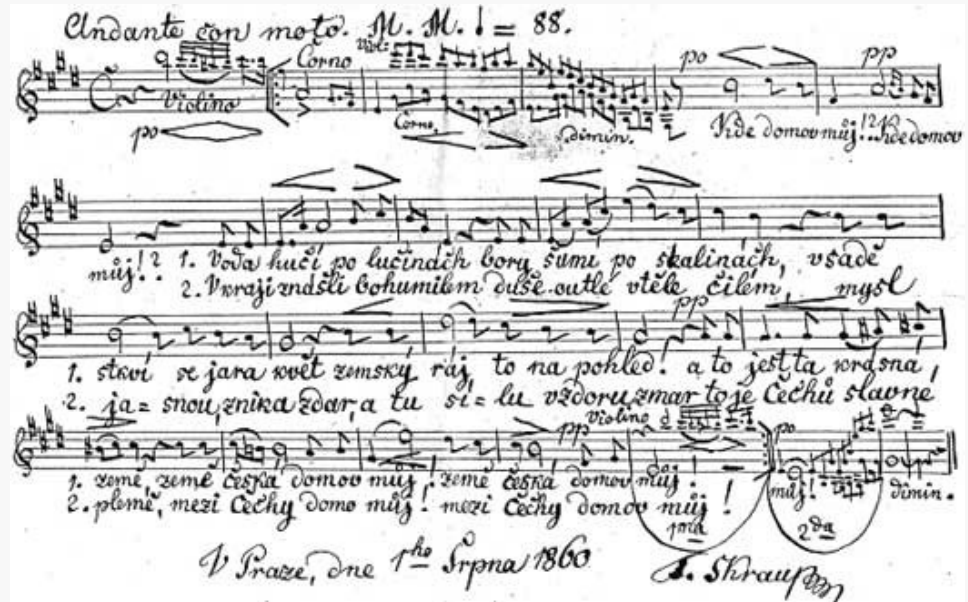 Andante con moto. M. M. ♩ = 88.
Viol:
Corno
po pp
Violino
Corno.
po dimin. Kde domov můj!? Kde domov
můj!? 1. Voda hučí po lučinách bory šumí po skalinách, všadě
2. V kraji znášli bohumilém duše outlé v těle čilém, mysl
pp
1. stkví se jara květ zemský ráj to na pohled! a to jest ta krásná,
2. ja= snou, znika zdar, a tu sí= lu vzdoru zmar to je Čechů slavné
Violino
pp po
1. země, země česká domov můj! země česká domov můj! můj! dimin.
2. plemě, mezi Čechy domo můj! mezi Čechy domov můj!
1ma 2da
V Praze, dne 1ho Srpna 1860 F. Škraup